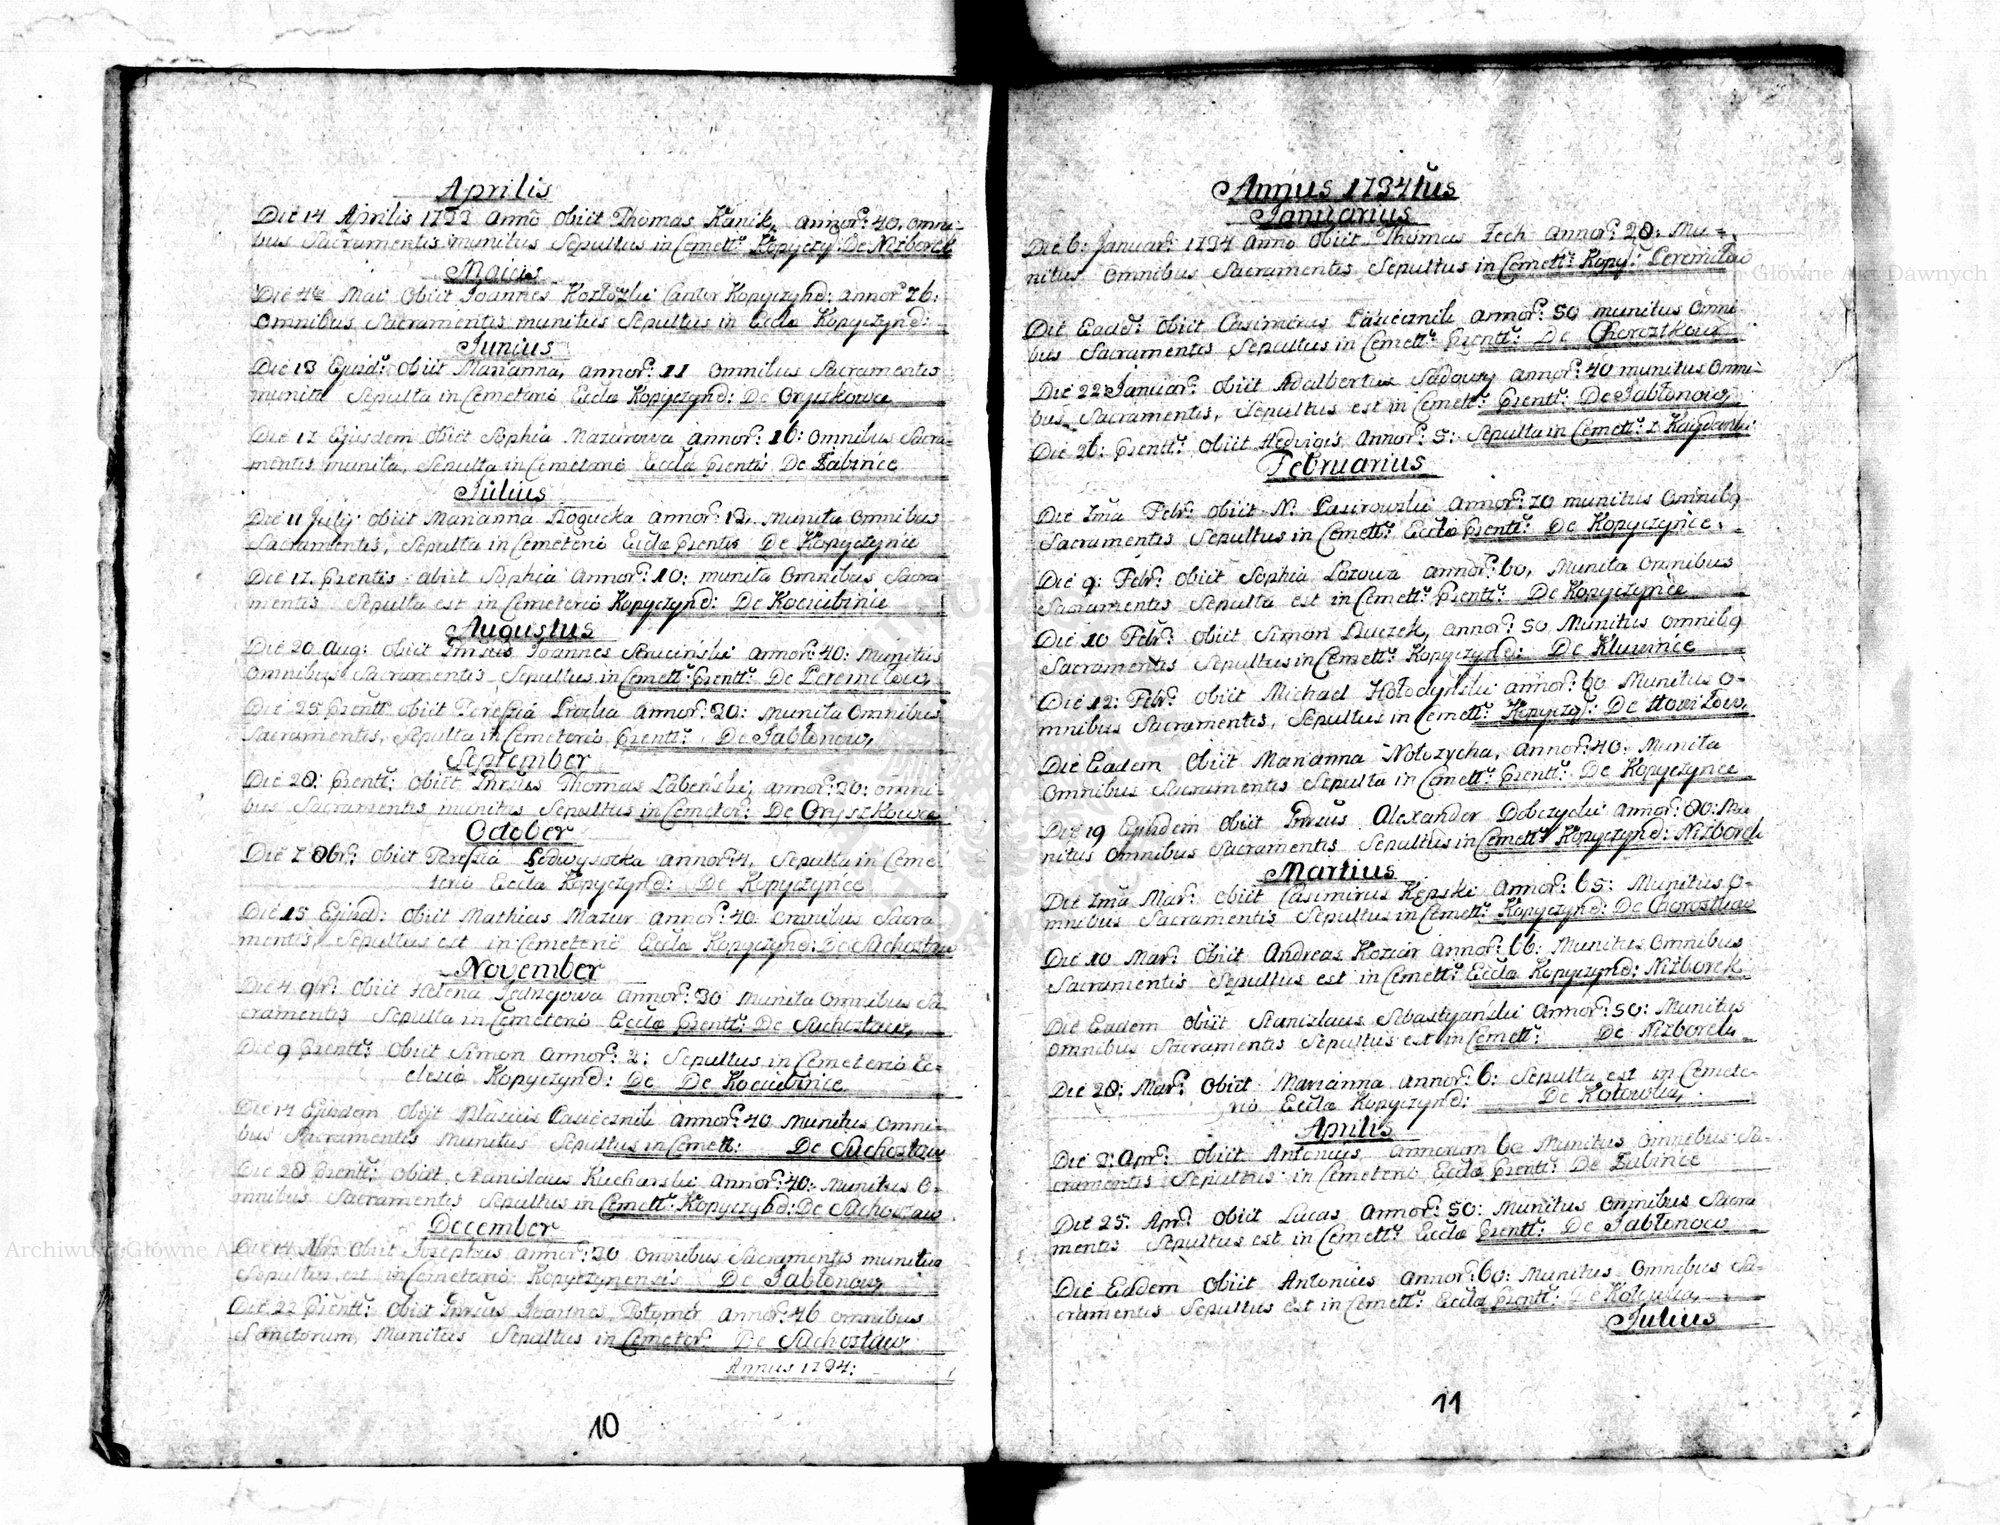 Aprilis
Die 14 Aprilis 1733 Anno Obiit Thomas Kanik, annor: 40, omni-
bus Sacramentis munitus Sepultus in Cemett: Kopyczy: De Nizborek
Maius
Die 4ta Mai Obiit Joannes Cantor Kopyczynd: annor 76:
Omnibus Sacramentis munitus Sepultus in Eccla Kopyczynd:
Junius
Die 13 Ejusd: Obiit Marianna, annor: 11 Omnibus Sacramentis
munita Sepulta in Cemeterio Eccla Kopyczynd: De Oryszkowce
Die 17 Ejusdem Obiit Sophia Mazurowa annor: 16: Omnibus Sacra-
mentis munita, Sepulta in Cemeterio Eccla Prentis De Łabince
Julius
Die 11 July Obiit Marianna Rogucka annor: 13, Munita Omnibus
Sacramentis, Sepulta in Cemeterio Eccla Prentis De Kopyczynce
Die 17. Prentis obiit Sophia Annor: 10: munita Omnibus Sacra
mentis Sepulta est in Cemeterio Kopyczynd: De Kociubince
Augustus
Die 20 Aug: Obiit Joannes annor: 40: Munitus
Omnibus Sacramentis Sepultus in Cemett: Prentt: De Peremiłow
Die 25 Prentt: obiit Teressia annor: 30: Munita Omnibus
Sacramentis, Sepulta in Cemeterio Prentt: De Jabłonow,
September
Die 28: Prentt: Obiit Thomas Łabęski, annor: 30: omni-
bus Sacramentis munitus Sepultus in Cemeter: De Oryszkowce
October
Die 7 8br: Obiit Teressia Podwysocka annor: 4, Sepulta in Ceme
terio Eccla Kopyczynd: De Kopyczynce
Die 15 Ejusd: Obiit Mathias Mazur annor: 40 Omnibus Sacra
mentis, Sepultus est in Cemeterio Eccla Kopyczynd: De Suchostaw
November
Die 4 9br: Obiit Helena annor: 30 Munita Omnibus Sa-
cramentis Sepulta in Cemeterio Eccla Prentt: De Suchostaw,
Die 9 Prentt: Obiit Simon Annor: 2: Sepultus in Cemeterio Ec-
clesia Kopyczynd: De De Kociubince
Die 14 Ejusdem Obijt Pasiecznik annor: 40 Munitus Omni-
bus Sacramentis Munitus Sepultus in Cemett: De Suchostaw
Die 28 Prentt: Obiit Stanislaus Kucharski annor: 40: Munitus O-
mnibus Sacramentis Sepultus in Cemett: Kopyczynd: De Suchostaw
December
Die 14 Obiit Josephus annor: 30 Omnibus Sacramentis munitus
Sepultus est in Cemeterio Kopyczynensis De Jabłonow,
Die 22 Prentt: Obiit Joannes annor: 46 omnibus
Munitus Sepultus in Cemeter: De Suchostaw
Annus 1734:
10
Annus 1734tus
Januarius
Die 6: Januar: 1734 Anno Obiit Thomas Zech Annor: 28: Mu-
nitus Omnibus Sacramentis Sepultus in Cemett: Kopy: Peremiłow
Die Eaded: Obiit Casimirus Pasiecznik annor: 50 munitus Omni
bus Sacramentis Sepultus in Cemett: Prentt: De Chorostkow
Die 22 Januar: Obiit Adalbertus Sadowy annor: 40 munitus Omni-
bus Sacramentis, Sepultus est in Cemett: Prentt: De Jabłonow,
Die 26: Prentt: Obiit Hedvigis Annor: 5: Sepulta in Cemett:
Februarius
Die 7ma Febr: Obiit N. Annor: 70 munitus Omnibq
Sacramentis Sepultus in Cemett: Eccla Prentt: De Kopyczynce.
Die 9: Febr: Obiit Sophia Łozowa annor: 60, Munita Omnibus
Sacramentis Sepulta est in Cemett: Prentt: De Kopyczynce
Die 10 Febr: Obiit Simon Buczek, annor: 50 Munitus Omnibq
Sacramentis Sepultus in Cemett: Kopyczynd: De Kluwince
Die 12: Febr: Obiit Michael Hołodyński annor: 60 Munitus O-
mnibus Sacramentis, Sepultus in Cemett: Kopyczy: De Howiłow,
Die Eadem Obiit Marianna Nołozycha, annor: 40: Munita
Omnibus Sacramentis Sepulta in Cemett: Prentt: De Kopyczynce
Die 19 Ejusdem Obiit Alexander Dobczycki annor: 80: Mu
nitus Omnibus Sacramentis Sepultus in Cemett: Kopyczynd: Nizborek
Martius
Die 7ma Mar: Obiit Casimirus Kępski Annor: 65: Munitus O-
mnibus Sacramentis Sepultus in Cemett: Kopyczynd: De Chorostkow
Die 10 Mar: Obiit Andreas Koziar annor: 66: Munitus Omnibus
Sacramentis Sepultus est in Cemett: Eccla Kopyczynd: Nizborek
Die Eadem Obiit Stanislaus Sebastyański Annor: 50: Munitus
Omnibus Sacramentis Sepultus est in Cemett: De Nizborek
Die 28: Mar: Obiit Marianna annor: 6: Sepulta est in Cemete-
rio Eccla Kopyczynd: De Kotowka,
Aprilis
Die 3: Apr: Obiit Antonius annorum 60 Munitus Omnibus Sa-
cramentis Sepultus in Cemeterio Eccla Prentt: De Łabince
Die 25: Apr: Obiit Lucas annor: 50: Munitus Omnibus Sacra
mentis Sepultus est in Cemett: Eccla Prentt: De Jabłonow
Die Eadem Obiit Antonius annor: 60: Munitus Omnibus Sa-
cramentis Sepultus est in Cemett: Eccla Prentt: De Kotowka,
Julius
11